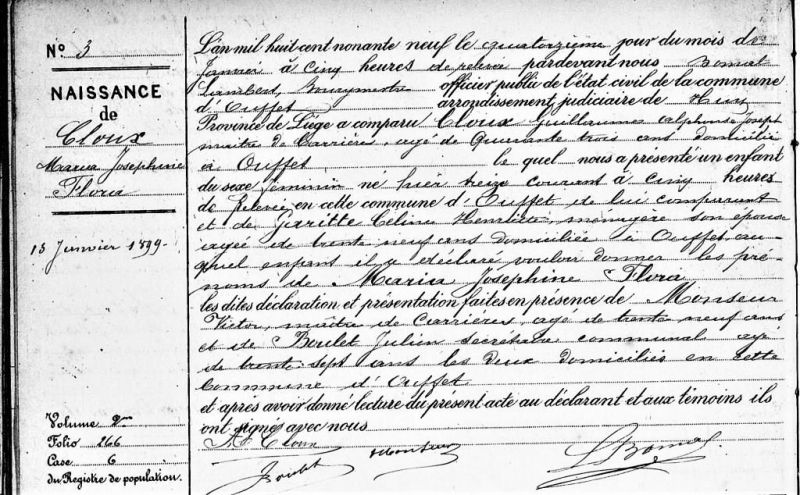 N° 3
NAISSANCE
de
Cloux
Maria Joséphine
Flora
13 Janvier 1899.
Volume 2me
Folio 266
Case 6
du Registre de population.
L'an mil huit cent nonante neuf le quatorzième jour du mois de
Janvier à cinq heures de relevée pardevant nous Bomal
Lambert, Bourgmestre officier public de l'état civil de la commune
d'Ouffet arrondissement judiciaire de Huy
Province de Liége a comparu Cloux Guillaume Alphonse Joseph
maître de Carrières, agé de Quarante trois ans domicilié
à Ouffet le quel nous a présenté un enfant
du sexe féminin né hier treize courant à cinq heures
de relevée en cette commune d'Ouffet de lui comparant
et de Garitte Céline Henriette, ménagère son épouse
agée de trente neuf ans domiciliée à Ouffet au-
quel enfant il a déclaré vouloir donner les pré-
noms de Maria Joséphine Flora
les dites déclaration et présentation faites en présence de Monseur
Victor, maître de Carrières, agé de trente neuf ans
et de Boulet Julien secrétaire communal agé
de trente-sept ans les deux domiciliés en cette
Commune d'Ouffet
et après avoir donné lecture du présent acte au déclarant et aux témoins ils
ont signés avec nous
Cloux
Boulet VMonseur LBomal